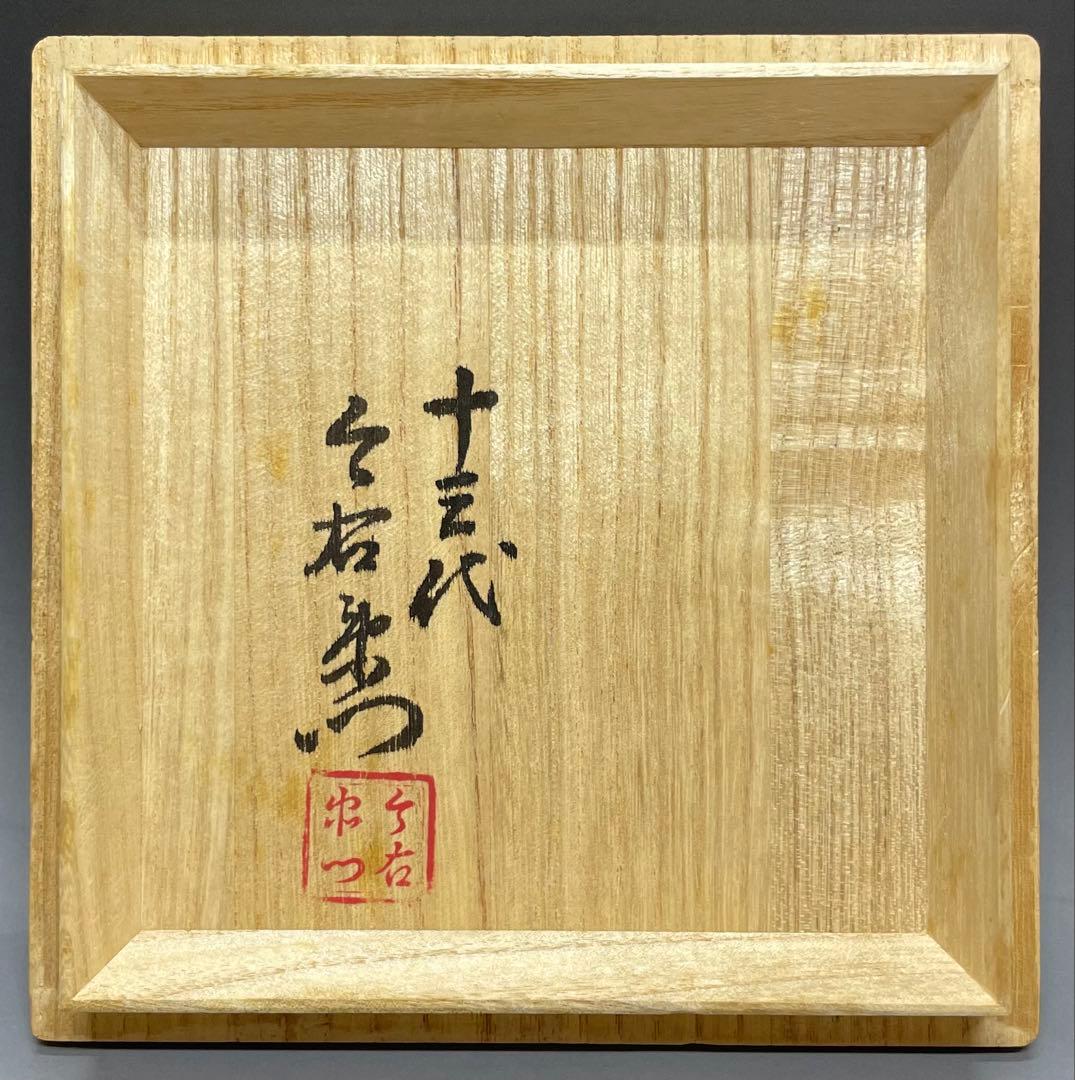 十三代
今右衛門
今右
衛門